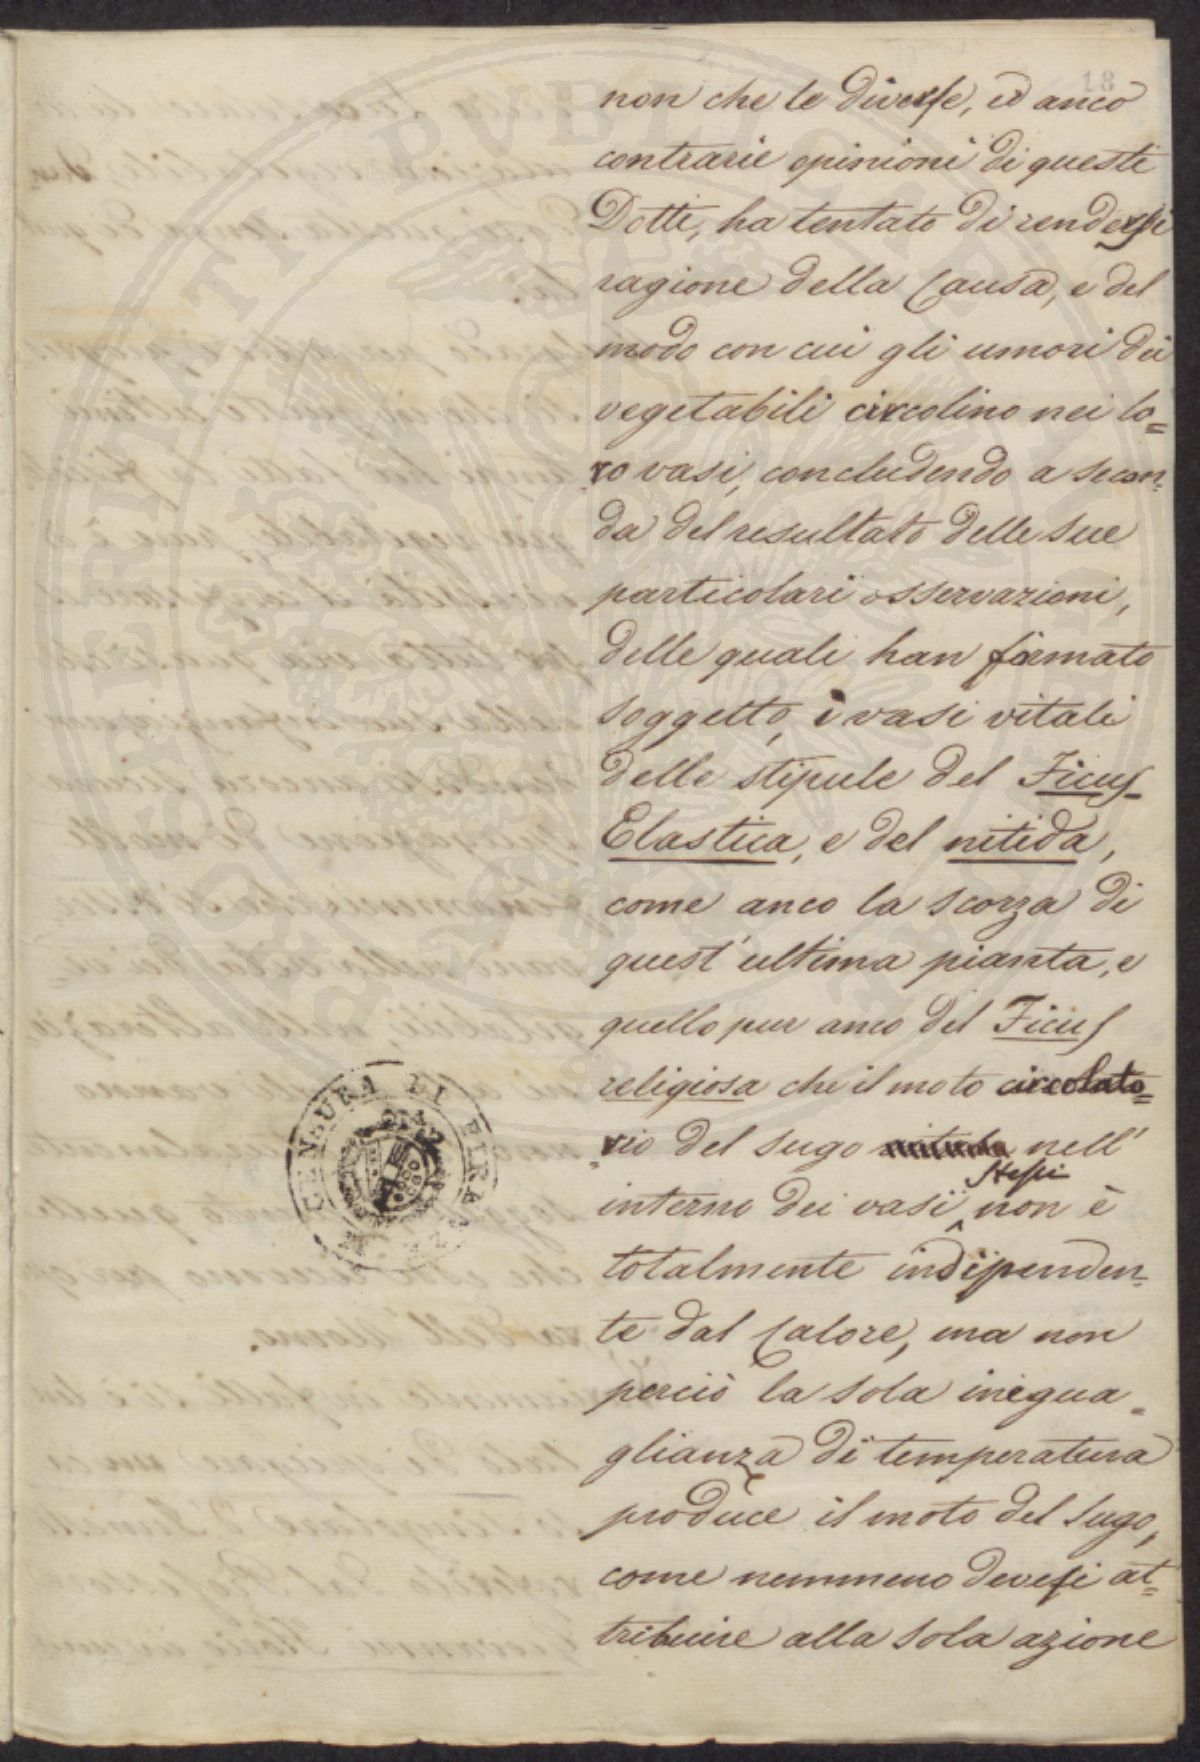 18
non che le diverse, ed anco
contrarie opinioni di questi
Dotti, ha tentato di rendersi
ragione della Causa, e del
modo con cui gli umori dei
vegetabili circolino nei lo=
ro vasi, concludendo a secon=
da del resultato delle sue
particolari osservazioni,
delle quali han formato
soggetto, i vasi vitali
delle stipule del Ficus
Elastica, e del nitida,
come anco la scorza di
quest'ultima pianta, e
quello pur anco del Ficus
religiosa che il moto circolato=
rio del sugo nell'
interno dei vasi stessi non è
totalmente indipenden=
te dal Calore, ma non
perciò la sola inegua=
glianza di temperatura
produce il moto del sugo,
come nemmeno devesi at=
tribuire alla sola azione
CENSURA DI FIRENZE
PROSPERITATI PUBLICAE